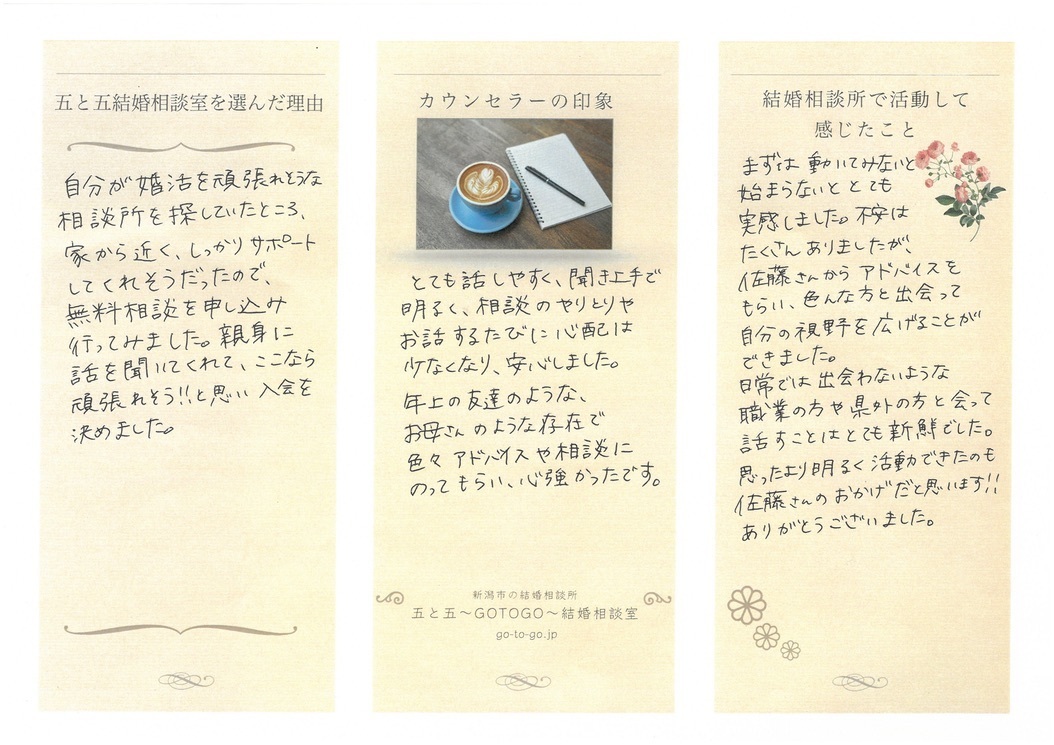 五と五結婚相談室を選んだ理由
自分が婚活を頑張れそうな
相談所を探していたところ、
家から近く、しっかりサポート
してくれそうだったので、
無料相談を申し込み
行ってみました。親身に
話を聞いてくれて、ここなら
頑張れそう!!と思い入会を
決めました。
カウンセラーの印象
とても話しやすく、聞き上手で
明るく、相談のやりとりや
お話するたびに心配は
少なくなり、安心しました。
年上の友達のような、
お母さんのような存在で
色々アドバイスや相談に
のってもらい、心強かったです。
新潟市の結婚相談所
五と五～GOTOGO～結婚相談室
go-to-go.jp
結婚相談所で活動して
感じたこと
まずは動いてみないと
始まらないととても
実感しました。不安は
たくさんありましたが、
佐藤さんからアドバイスを
もらい、色んな方と出会って
自分の視野を広げることが
できました。
日常では出会わないような
職業の方や県外の方と会って
話すことはとても新鮮でした。
思ったより明るく活動できたのも
佐藤さんのおかげだと思います!!
ありがとうございました。